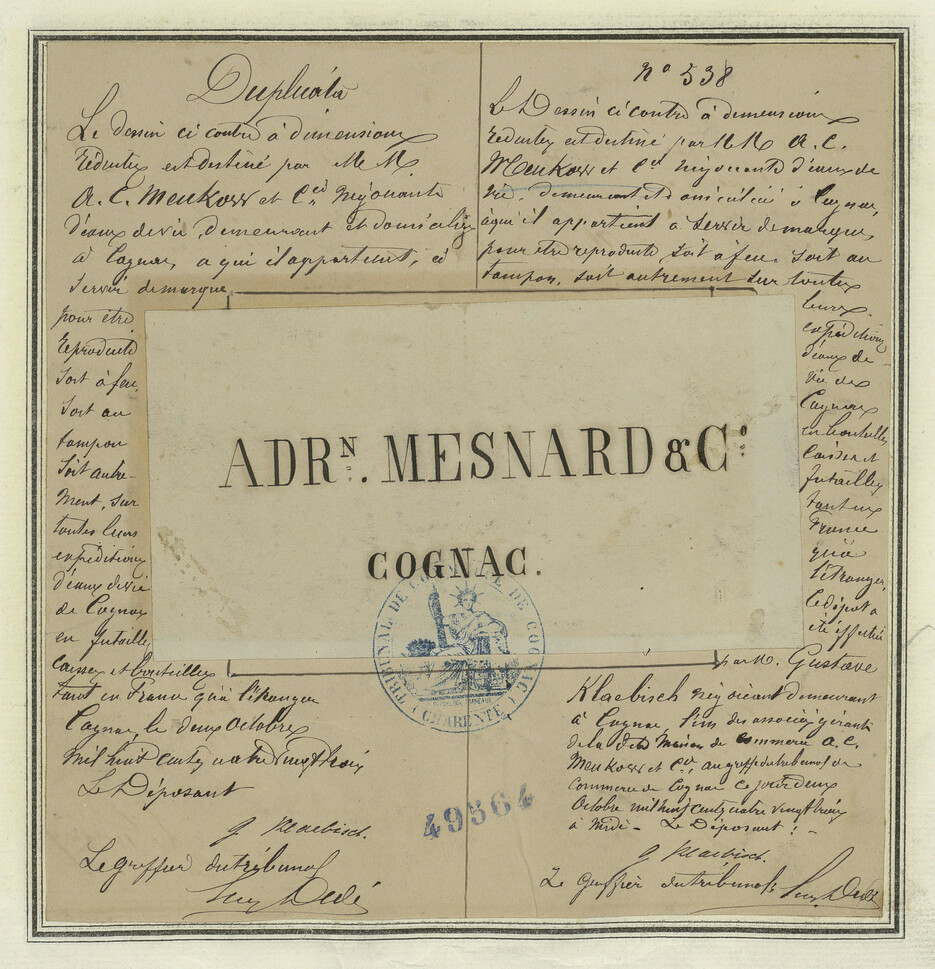 Duplicata
Le dessin ci contre à dimensions
réduites est destiné par M M.
A. C. Meukow et Cie, Négociants
d'eaux de vie, demeurant et domiciliés
à Cognac, a qui il appartient, à
servir de marque
pour être
reproduite
soit à feu,
soit au
tampon
soit autre-
ment, sur
toutes leurs
expéditions
d'eaux de vie
de Cognac
en futailles
caisses et bouteilles
tant en France qu'à l'étranger
Cognac, le deux Octobre
mil huit cent quatre vingt trois
Le Déposant
G Klaebisch.
Le greffier du tribunal
No 538
Le Dessin ci contre à dimensions
réduites est destiné par M M. A. C.
Meukow et Cie Négociants d'eaux de
vie, demeurant et domiciliés à Cognac,
à qui il appartient à servir de marque,
pour être reproduite soit à feu, soit au
tampon, soit autrement sur toutes
leurs
expéditions
d'eaux de
vie de
Cognac
en bouteilles
caisses et
futailles
tant en
France
qu'à
l'étranger,
le dépôt a
été effectué
par M. Gustave
Klaebisch négociant demeurant
à Cognac, l'un des associés gérants
de la dite Maison de commerce A. C.
Meukow et Cie, au greffe du tribunal de
commerce de Cognac ce jour deux
Octobre mil huit cent quatre vingt trois
à Midi - Le Déposant : -
G Klaebisch.
Le Greffier du tribunal
ADRN. MESNARD & Co
COGNAC.
TRIBUNAL DE COMMERCE DE COGNAC
(CHARENTE)
49564